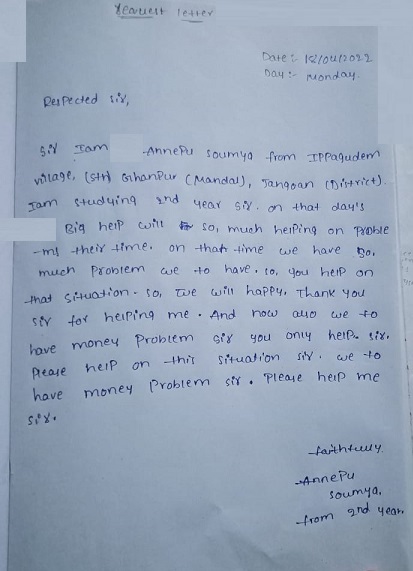 Request letter
Date:- 18/04/2022
Day:- Monday.
Respected sir,
Sir Iam Annepu soumya from Ippagudem
village, (stn) Ghanpur (Mandal), Jangoan (District).
Iam studying 2nd year sir. on that day's
Big help will so, much helping on proble
-ms their time. on that time we have so,
much problem we to have. so, you help on
that situation. so, we will happy. Thank you
sir for helping me. And now also we to
have money problem sir you only help. sir.
please help on this situation sir. we to
have money problem sir. please help me
sir.
faithfully
Annepu
soumya,
from 2nd year.